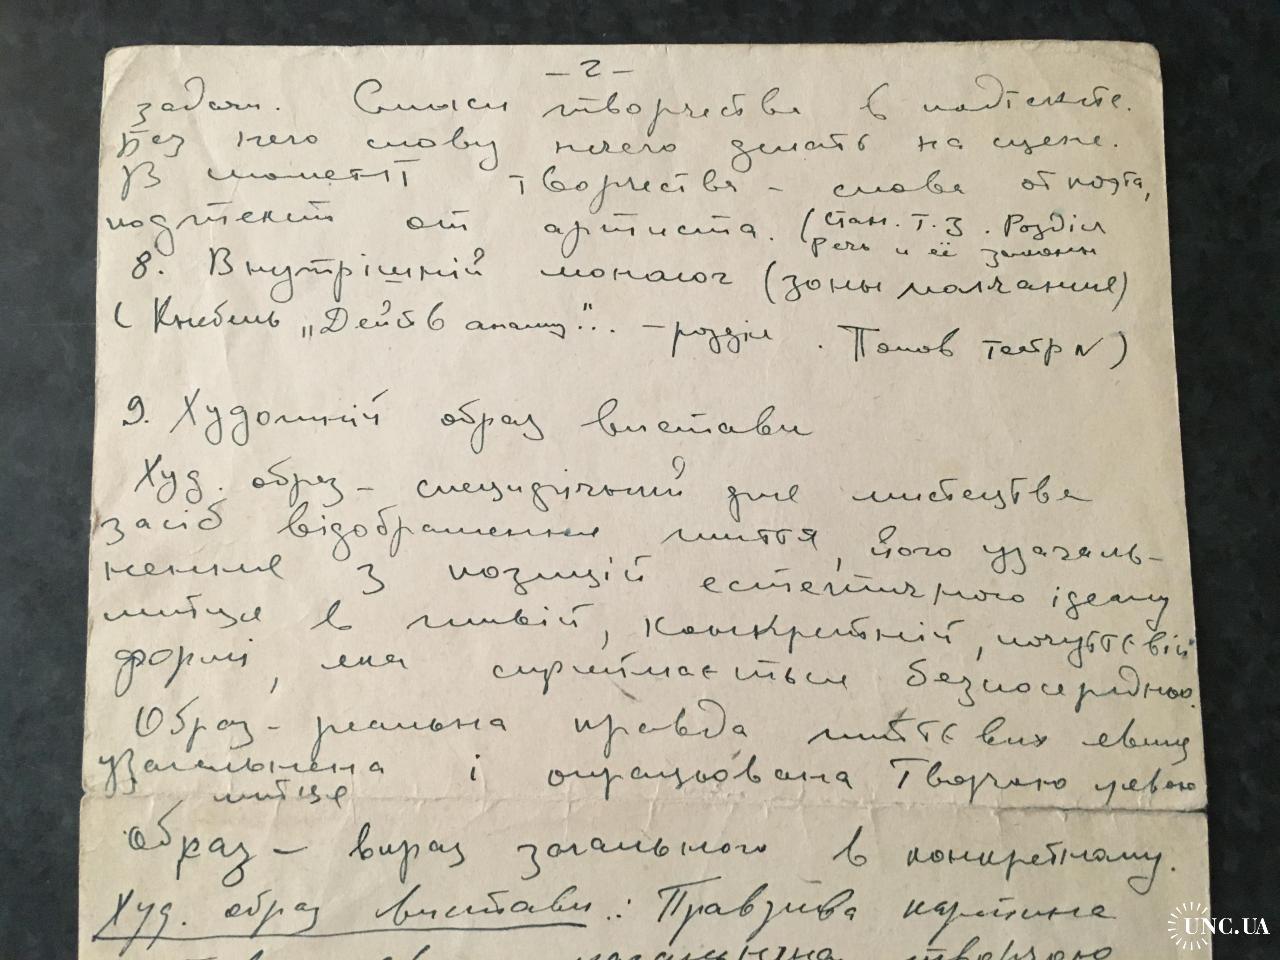 – 2 –
задачи. Смысл творчества в подтексте.
Без него слову нечего делать на сцене.
В момент творчества – слова от поэта,
подтекст от артиста. (Стан. т. 3. Розділ
Речь и её законы
8. Внутрішній монолог (зоны молчания)
(Кнебель „Действ анализ"... – розділ . Попов театр)
9. Художній образ вистави
Худ. образ – специфічний для мистецтва
засіб відображення життя, його узагаль-
нення з позицій естетичного ідеалу
митця в живій, конкретній, почуттєвій
формі, яка сприймається безпосередньо.
Образ – реальна правда життєвих явищ
узагальнена і опрацьована творчою уявою
митця
Образ – вираз загального в конкретному.
Худ. образ вистави: Правдива картина
творчою
UNC.UA